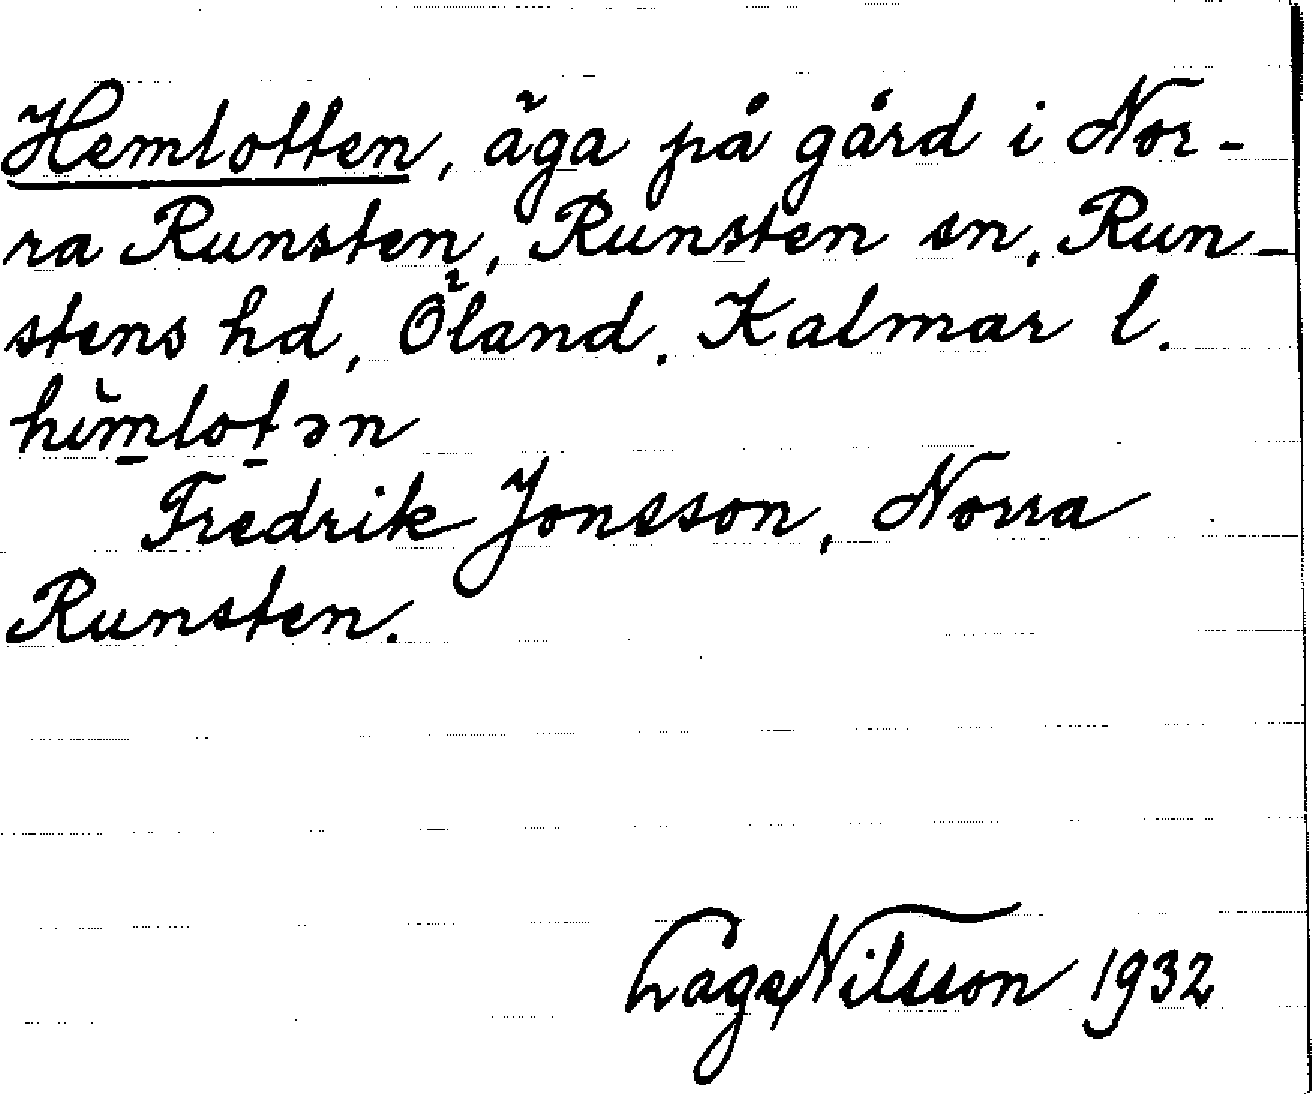 Hemlotten, äga på gård i Nor-
ra Runsten, Runsten sn, Run-
stens hd, Öland. Kalmar l.
himlotən
Fredrik Jonsson, Norra
Runsten.
Lage Nilsson 1932